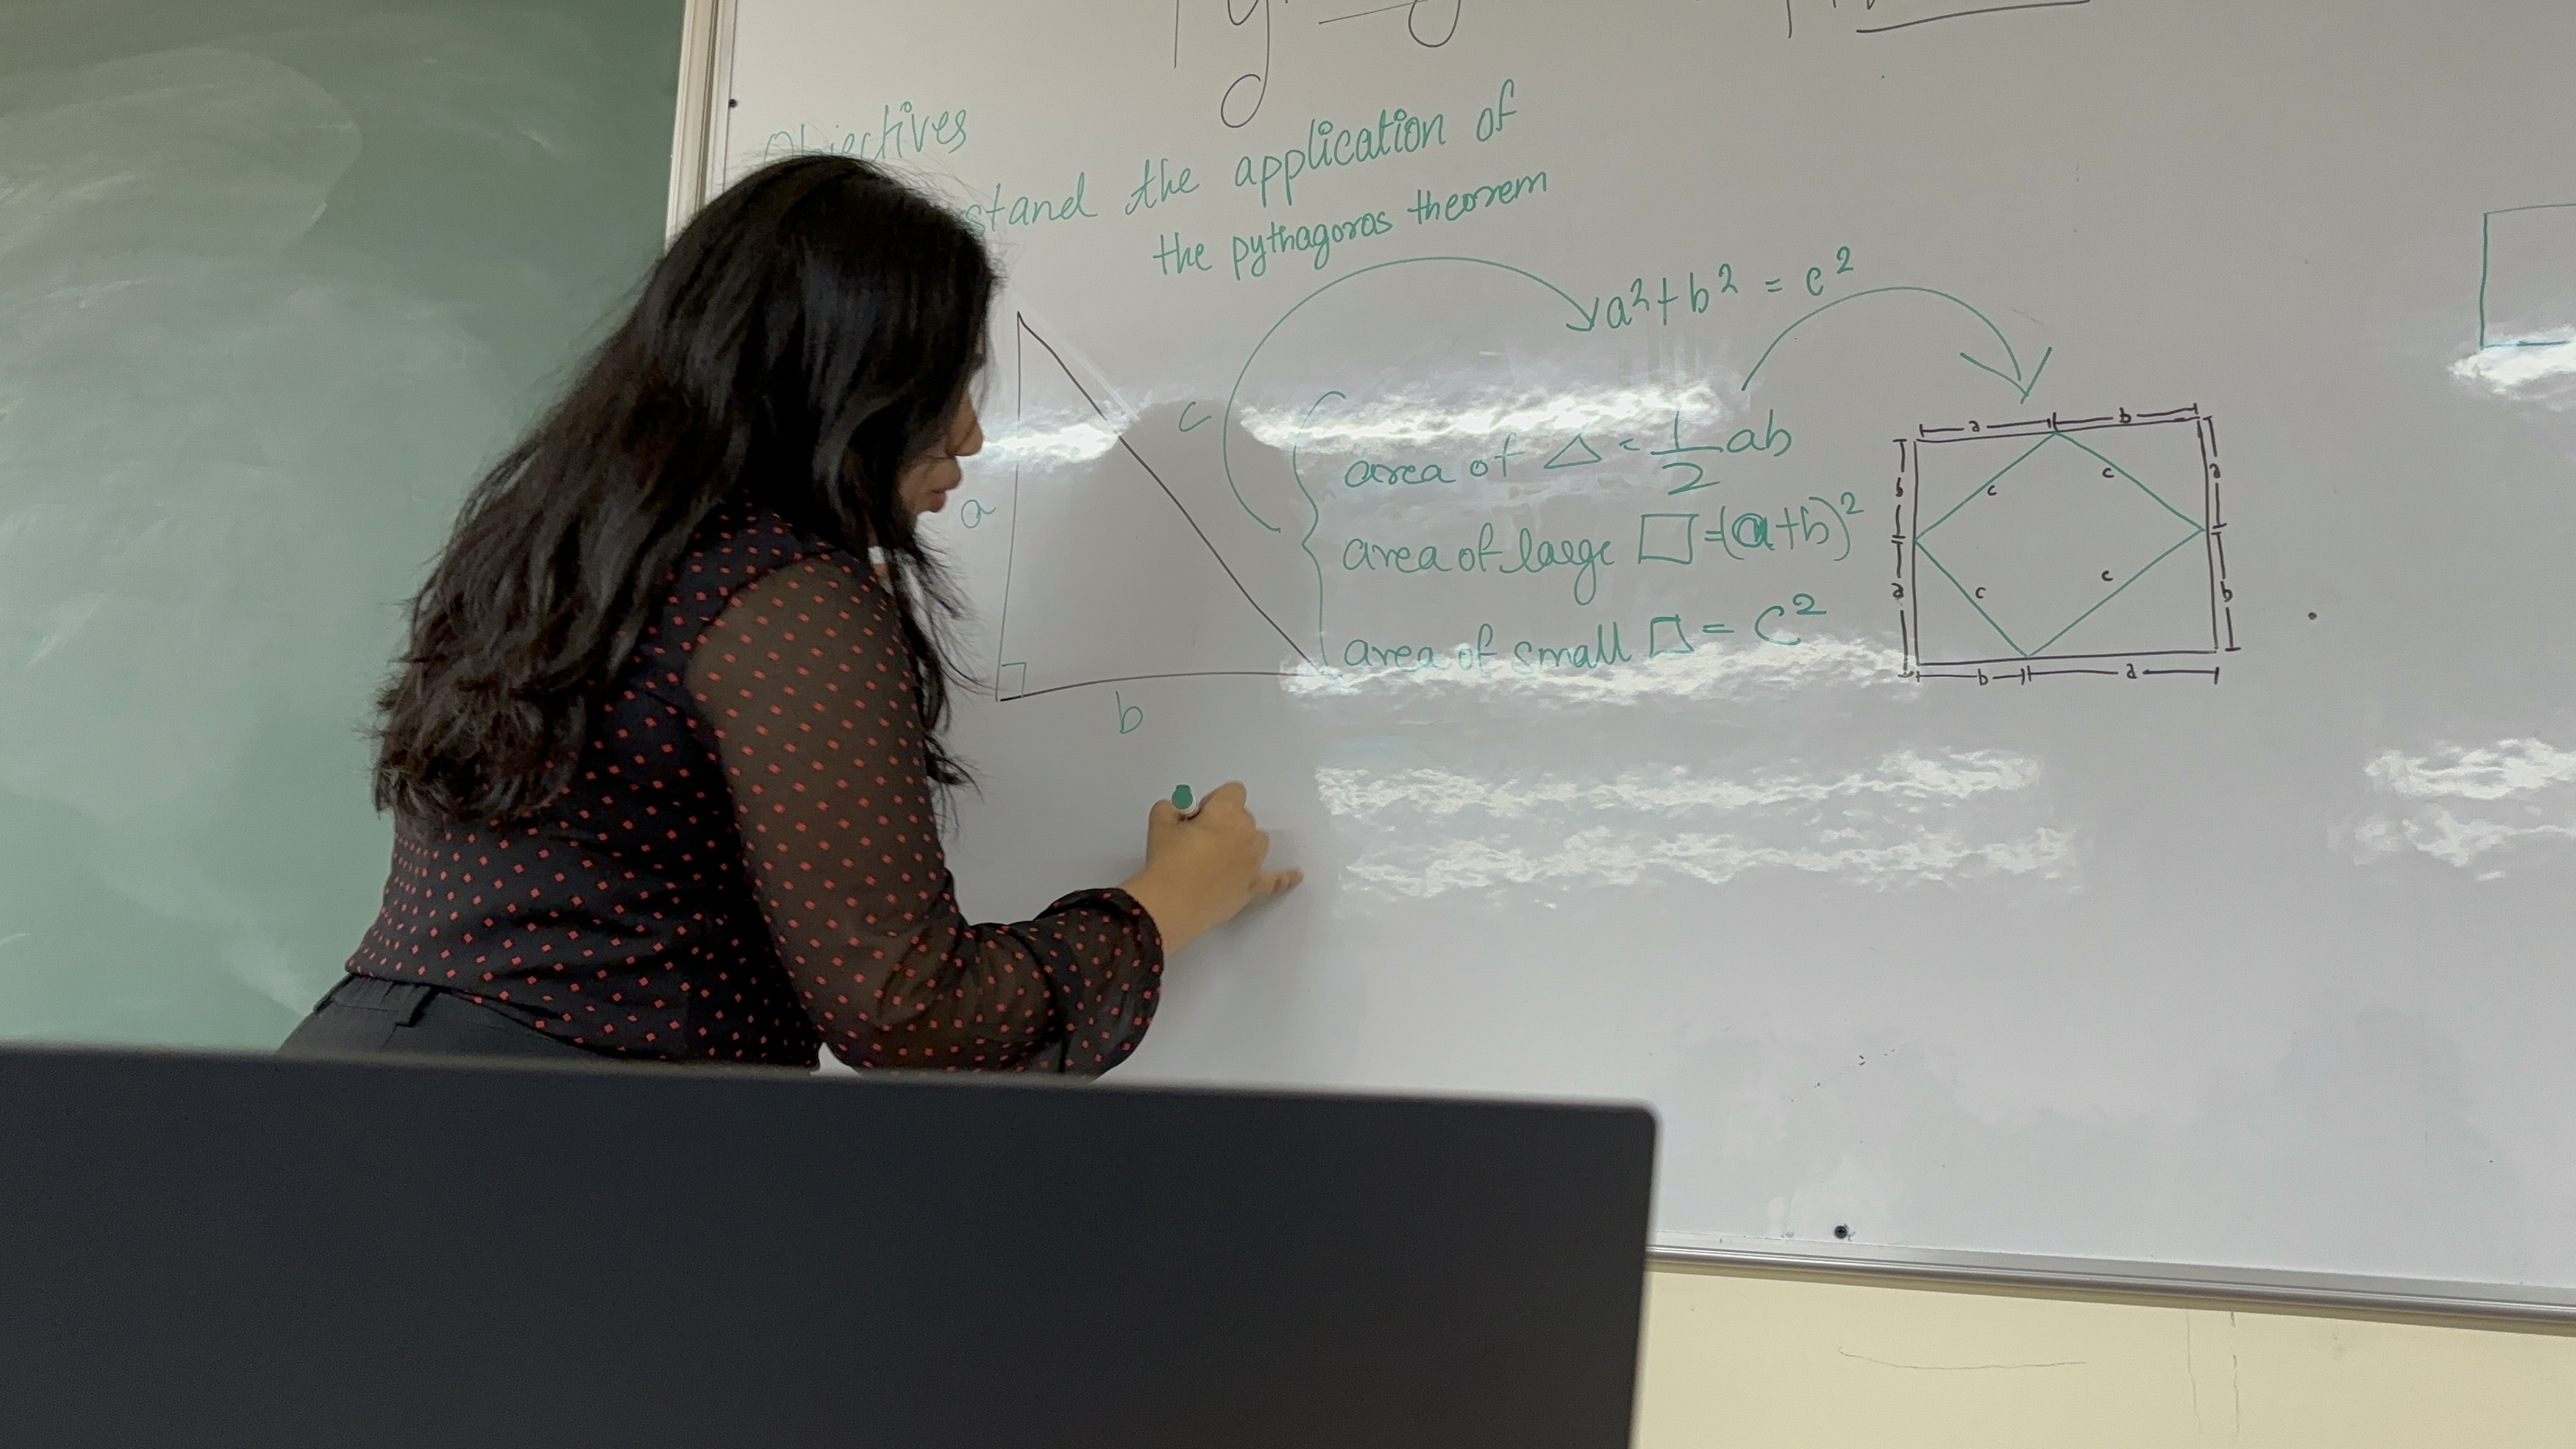 Objectives
the application of
the pythagoras theorem
a²+b² = c²
c
a
b
area of △ = 1/2 ab
area of large □ = (a+b)²
area of small □ = c²
a b
b c c a
a c c b
b a